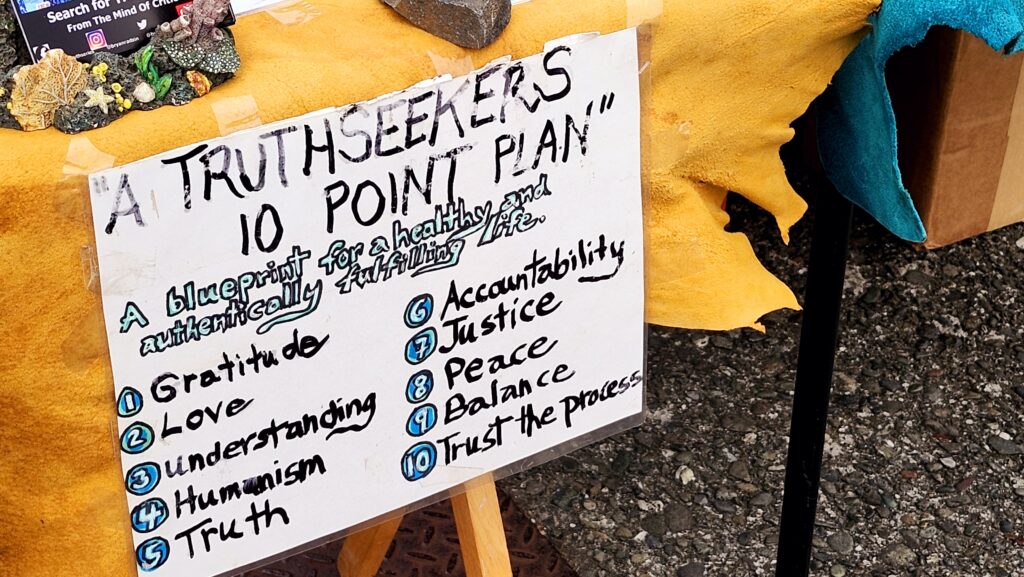 Search for
From The Mind Of
"A TRUTHSEEKERS
10 POINT PLAN"
A blueprint for a healthy and
authentically fulfilling life.
1 Gratitude
2 Love
3 understanding
4 Humanism
5 Truth
6 Accountability
7 Justice
8 Peace
9 Balance
10 Trust the process